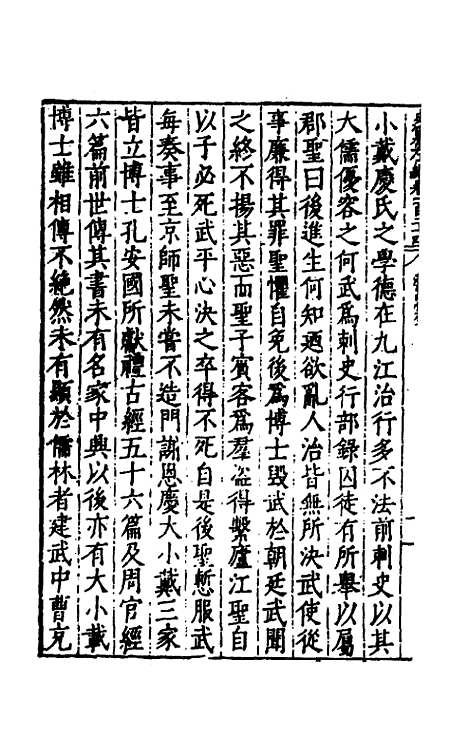 小戴慶氏之學德在九江治行多不法前刺史以其
大儒優容之何武爲刺史行部錄囚徒有所舉以屬
郡聖曰後進生何知迺欲亂人治皆無所決武使從
事廉得其罪聖懼自免後爲博士毀武於朝廷武聞
之終不揚其惡而聖子賓客爲羣盗得繫廬江聖自
以子必死武平心決之卒得不死自是後聖慙服武
每奏事至京師聖未嘗不造門謝恩慶大小戴三家
皆立博士孔安國所獻禮古經五十六篇及周官經
六篇前世傳其書未有名家中興以後亦有大小戴
博士雖相傳不絶然未有顯於儒林者建武中曹充